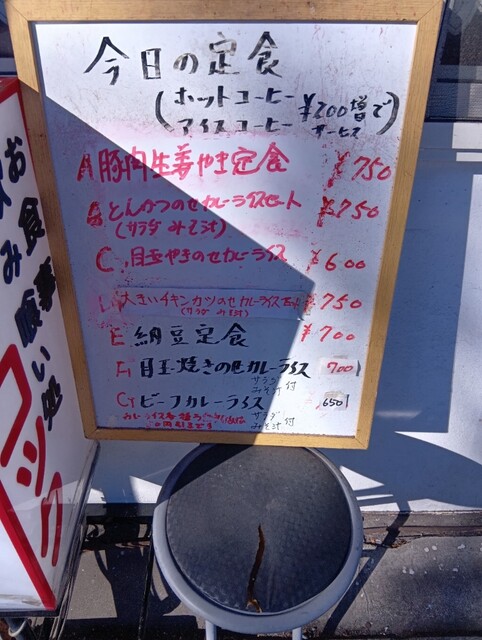 今日の定食
(ホットコーヒー
アイスコーヒー ¥200増で
サービス)
A 豚肉生姜やき定食 ¥750
B とんかつのせカレーライスセット ¥750
(サラダ みそ汁)
C 目玉やきのせカレーライス ¥600
大きいチキンカツのせカレーライスセット ¥750
(サラダ みそ汁)
E 納豆定食 ¥700
F 目玉焼きのせカレーライス 700
サラダ みそ汁 付
G ビーフカレーライス 650
サラダ みそ汁 付
お食事喰い処
コック